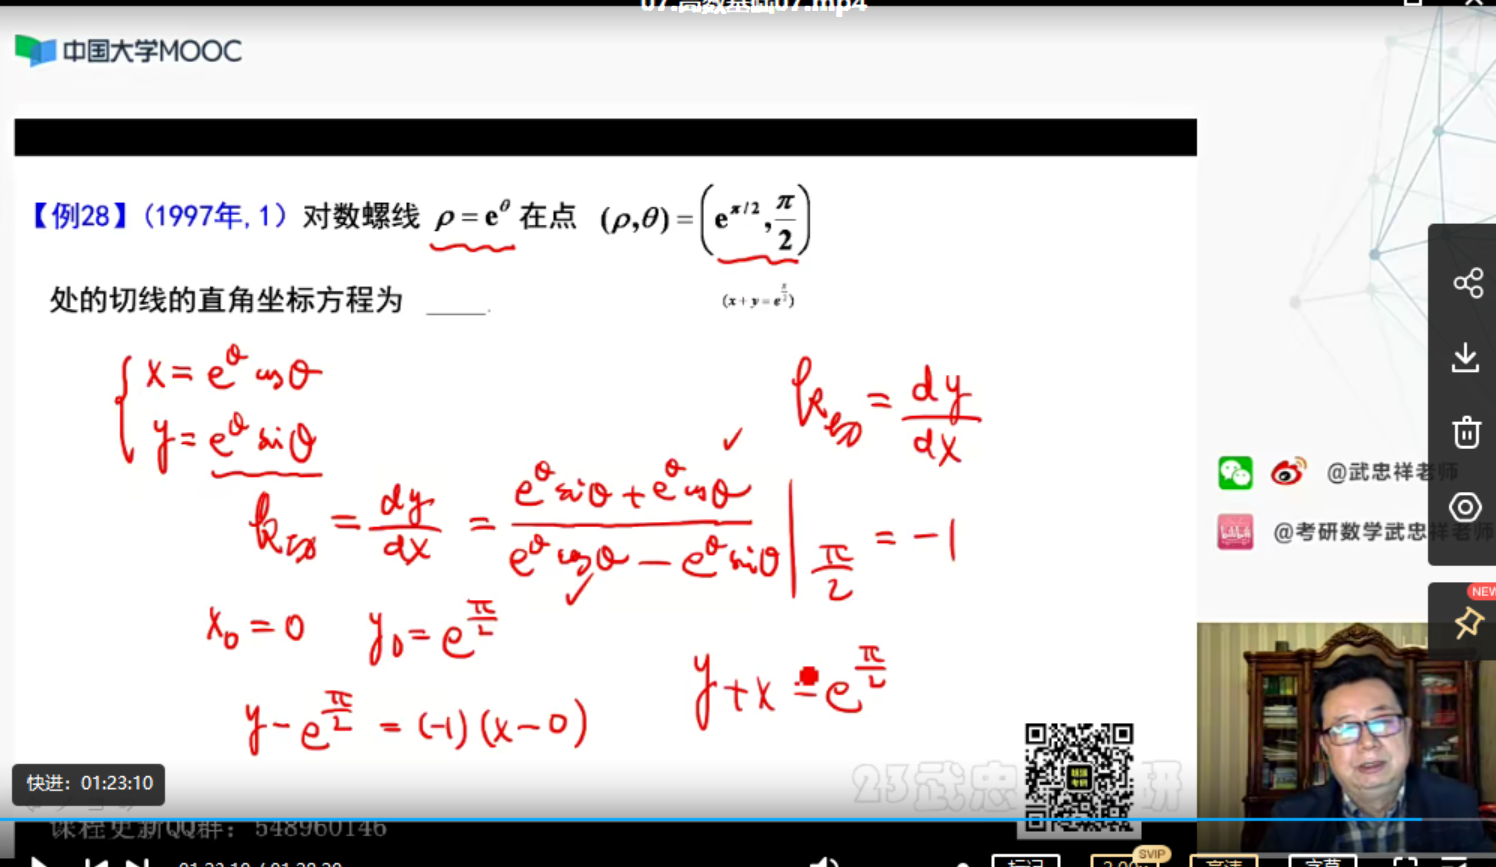 07.高数基础07.mp4
中国大学MOOC
【例28】(1997年,1) 对数螺线 ρ = e^θ 在点 (ρ,θ) = (e^{π/2}, π/2)
处的切线的直角坐标方程为 ____.
(x + y = e^{π/2})
{ x = e^θ cosθ
y = e^θ sinθ
k切 = dy/dx
k切 = dy/dx = (e^θ sinθ + e^θ cosθ)/(e^θ cosθ − e^θ sinθ) | π/2 = −1
x₀ = 0 y₀ = e^{π/2}
y − e^{π/2} = (−1)(x − 0)
y + x = e^{π/2}
@武忠祥老师
@考研数学武忠祥老师
NEW
快进：01:23:10
课程更新QQ群：548960146
SVIP
标记
高清
字幕